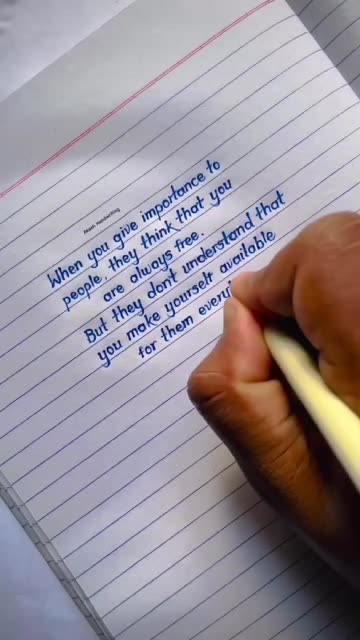 Akash Handwriting
When you give importance to
people, they think that you
are always free.
But they dont understand that
you make yourself available
for them every